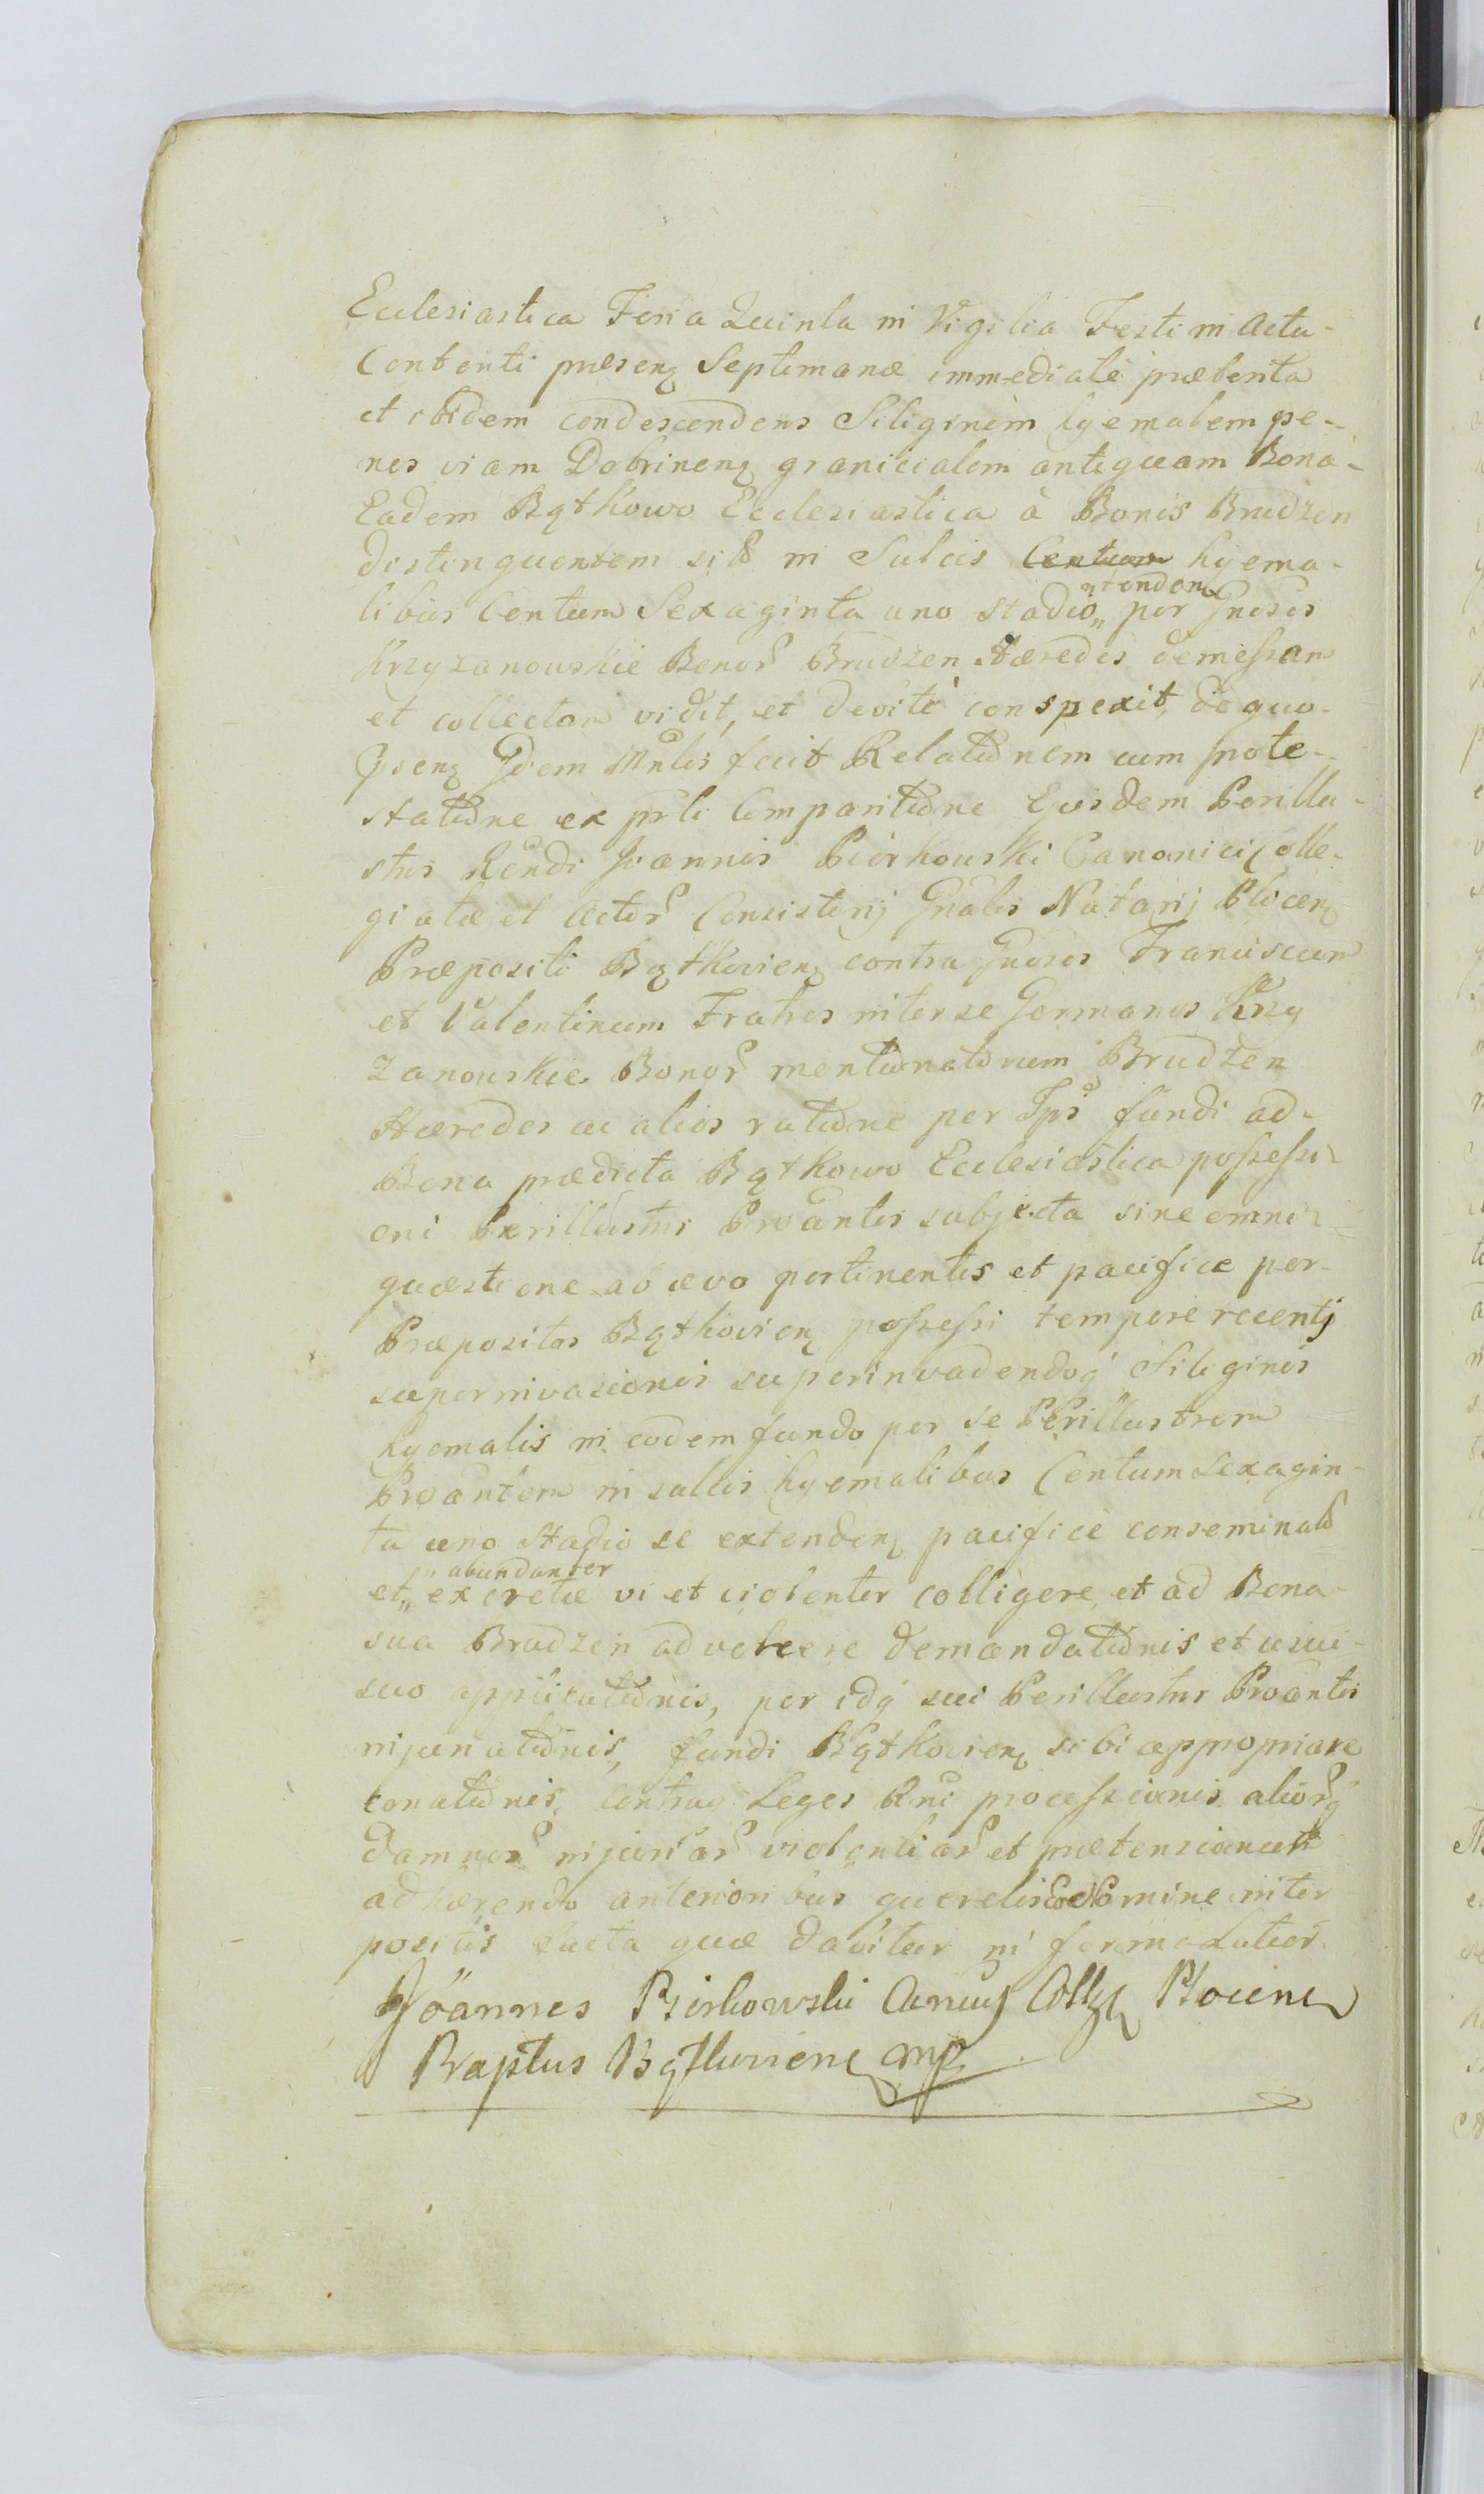 Ecclesiastica Feria Quinta in Vigilia Festi in Actu
Contenti præsenꝫ Septimanæ immediatè præterita
et ibidem condescendens Siliginem hyemalem pe-
nes viam Dobrinenꝫ granicialem antiquam Bona
Eadem Bątkowo Ecclesiastica à Bonis Brudzen
distinguentem sit̃ in Sulcis hyema-
ntendenꝫ
libus Centum Sexaginta uno stadio„ per Gnosos
Krzyzanowskie Bonoꝝ Brudzen Hæredes demeſsam
et collectam vidit, et devitè conspexit, de quo
Idem Mnlis fecit Relatiõnem cum prote-
statiõne ex prli Comparitiõne Ejusdem Perillu-
stris Rendi Joannis Piórkowski Canonici Colle-
giatæ et Actoꝝ Consistorij Gnalis Notarij Plocenꝫ
Præpositi Bątkovienꝫ contra Gnosos Franciscum
et Valentinum Fratres inter se Germanos Krzy
zanowskie Bonoꝝ mentiõnatorum Brudzen
Hæredes ac alios ratiõne per Ips̃ fundi ad
Bona prædicta Bątkowo Ecclesiastica poſseſsi-
oni Perillustris Proantis subjecta sine omni
quæstione ab ævo pertinentis et pacificæ per
Præpositos Bątkovienꝫ poſseſsi tempore recentj
superinvasionis superinvadendoq́ Siliginis
hyemalis in eodem fundo per se Perillustrem
Proantem in sulcis hyemalibus Centum sexagin-
ta uno stadio se extendenꝫ pacificè conseminatæ
abundanter
et„ excretæ vi et violenter colligere, et ad Bona
sua Brudzen advehere demandatiõnis et usui
suo applicatiõnis, per idq́ sui Perillustris Proantis
injuriatiõnis, fundi Bątkovienꝫ sibi appropriare
conatiõnis, Contraq́ Leges Rni proceſsionis alioꝝq́
damnoꝝ injuriaꝝ violentiaꝝ et prætensionum
adhærendo anterioribus querelis eo nomine inter
positis facta quæ dabitur in forma lator.
Joannes Piorkowski Cancus Collꝫ Plocens
Præptus Bątkoviens mp